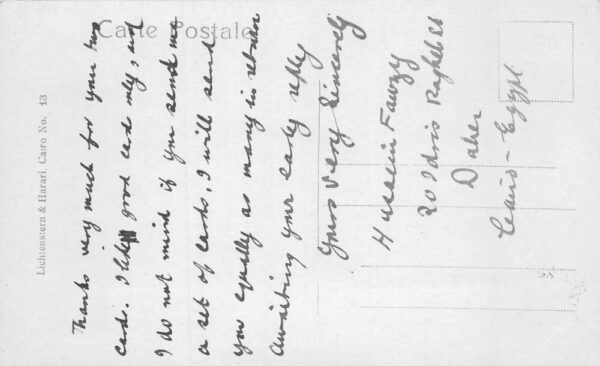 Carte Postale
Lichtenstern & Harari, Cairo No. 43
Thanks very much for your two
cards. I like good card only, and
I do not mind if you send me
a set of cards, I will send
you equally as many in return
Awaiting your early reply
Yours very sincerely
Hussein Fawzy
20 Idris
Daher
Cairo - Egypt